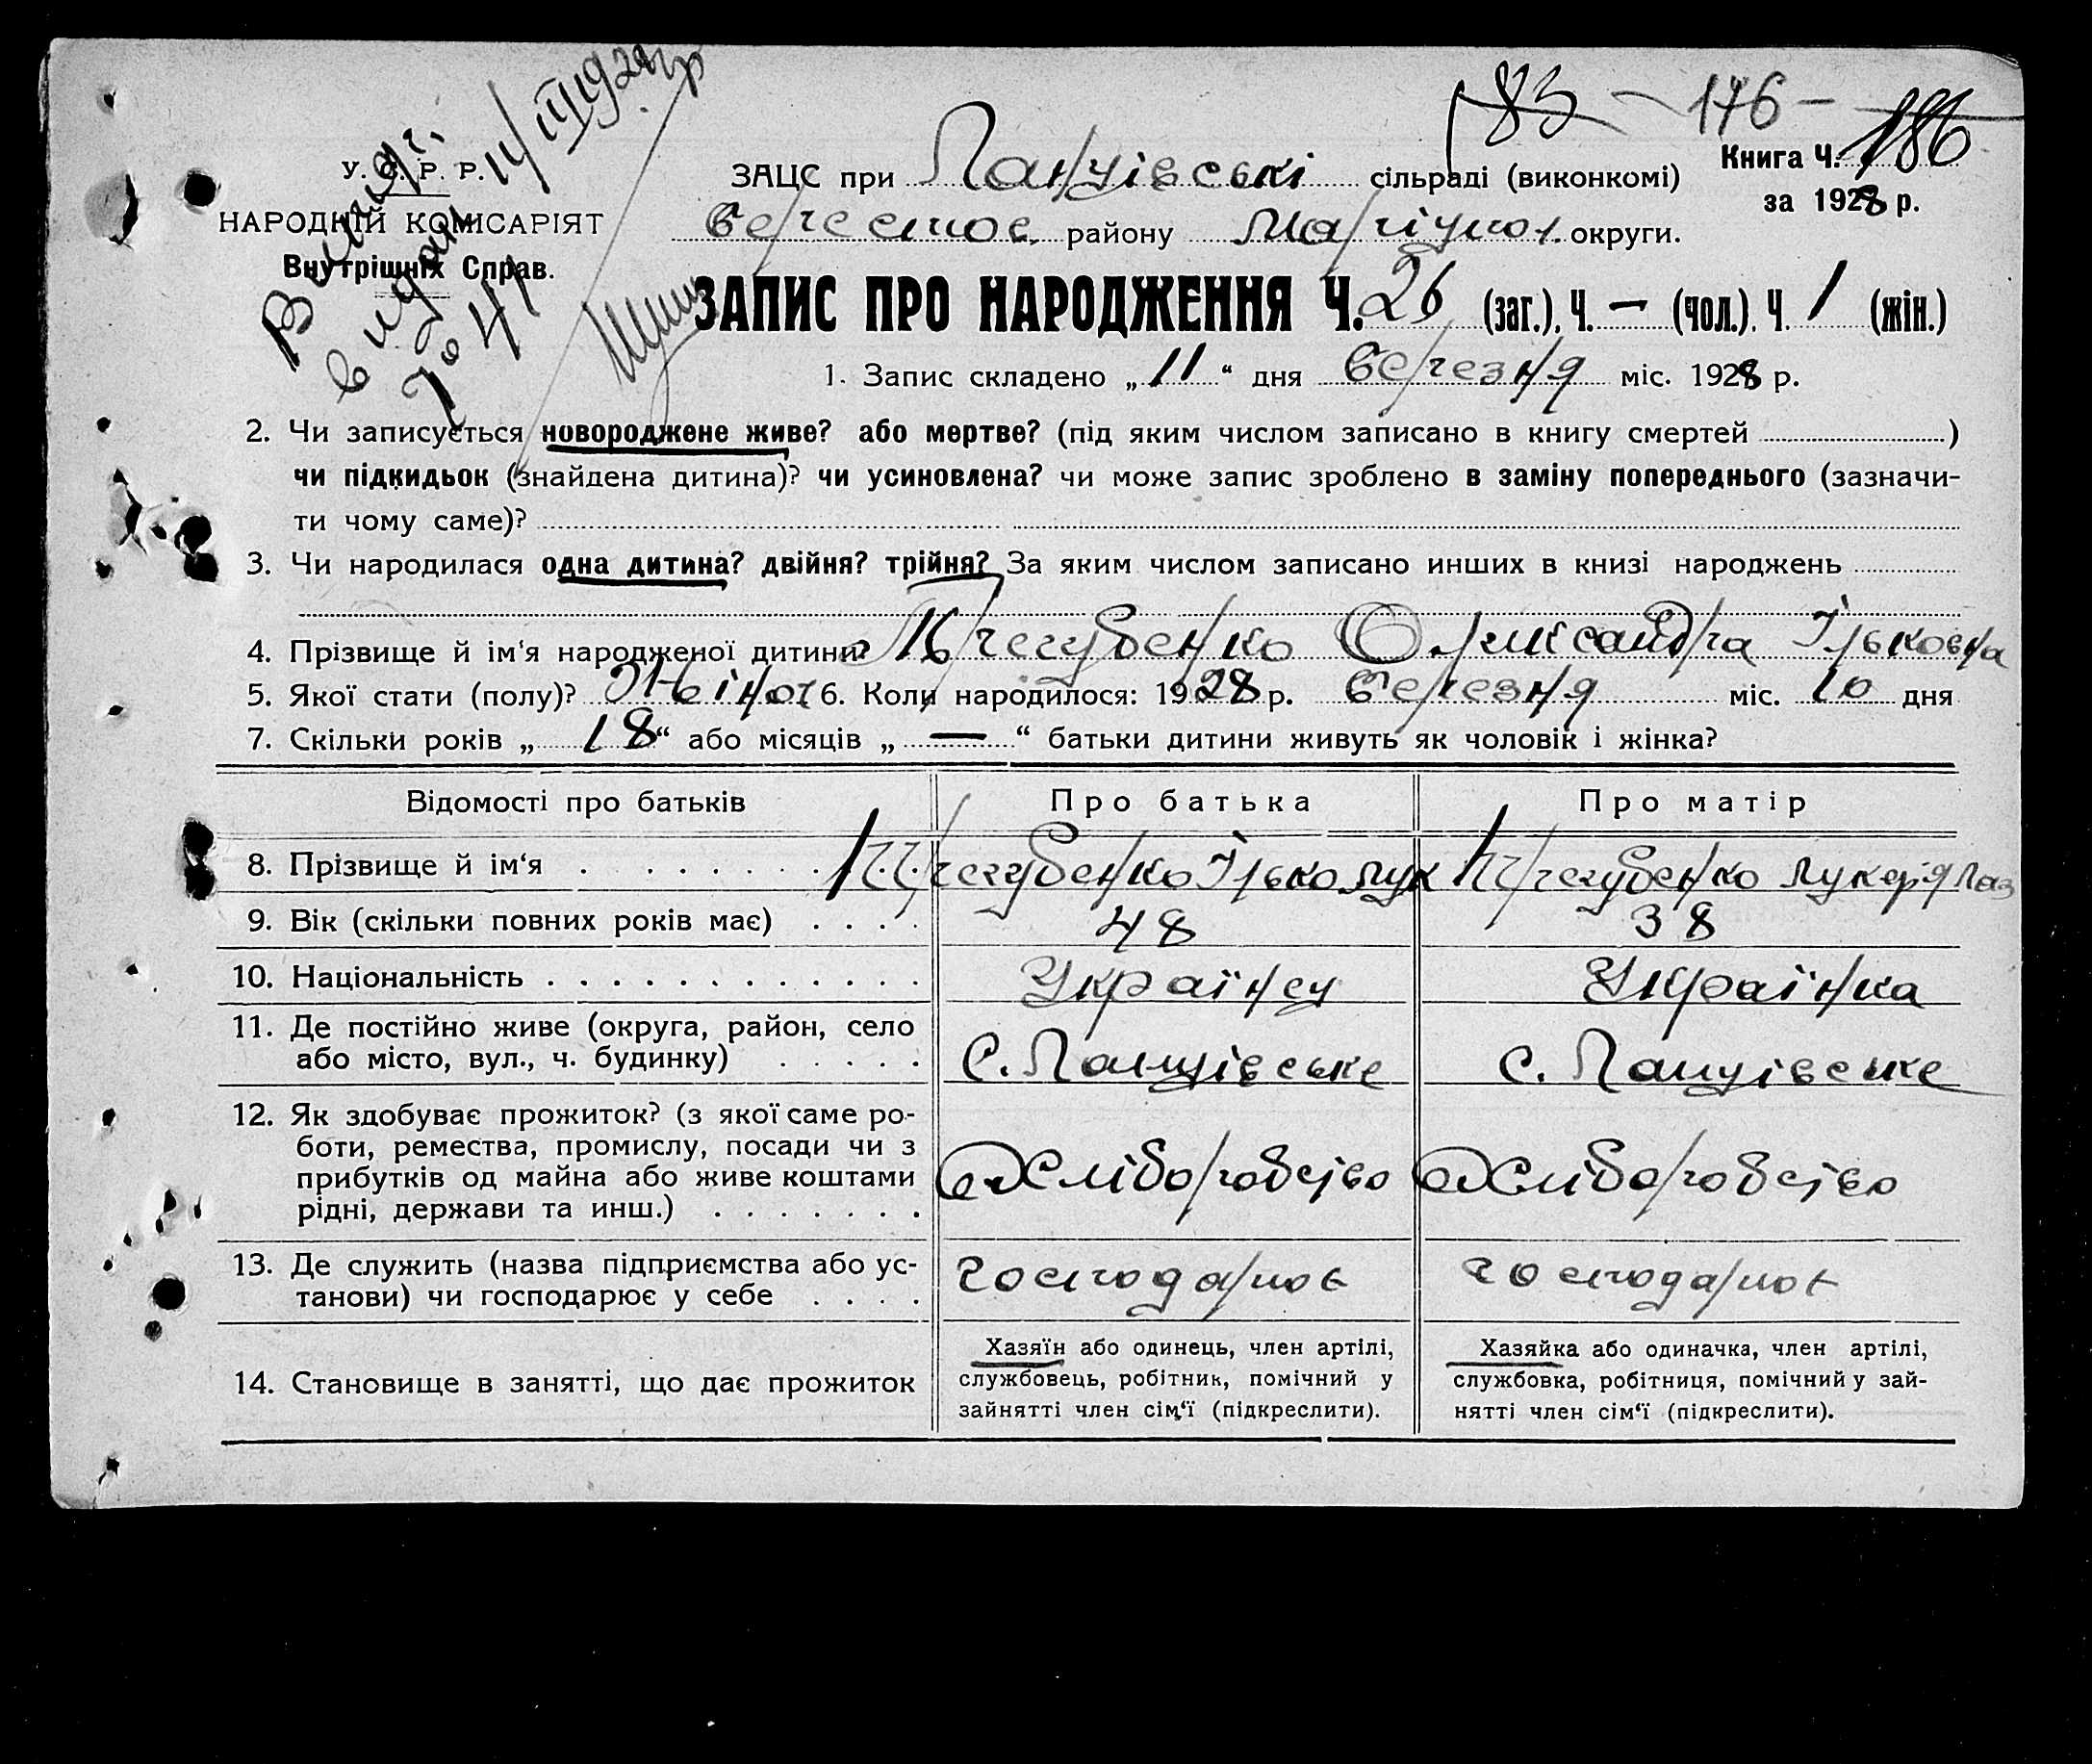 83 — 176 —
У. С. Р. Р.
НАРОДНІЙ КОМІСАРІЯТ
Внутрішніх Справ.
11/III 1929 р
видан
ЗАЦС при сільраді (виконкомі)
Книга Ч. 186
за 1928 р.
району Маріупол. округи.
ЗАПИС ПРО НАРОДЖЕННЯ Ч. 26 (заг.), Ч. — (чол.). Ч. 1 (жін.)
1. Запис складено „ 11 “ дня березня міс. 1928 р.
2. Чи записується новороджене живе? або мертве? (під яким числом записано в книгу смертей )
чи підкидьок (знайдена дитина)? чи усиновлена? чи може запис зроблено в заміну попереднього (зазначи-
ти чому саме)?
3. Чи народилася одна дитина? двійня? трійня? За яким числом записано инших в книзі народжень
4. Прізвище й ім‘я народженої дитини? Олександра Ільковна
5. Якої стати (полу)? Жіночої 6. Коли народилося: 1928 р. березня міс. 10 дня
7. Скільки років „ 18 “ або місяців „ — “ батьки дитини живуть як чоловік і жінка?
Відомості про батьків Про батька Про матір
8. Прізвище й ім‘я . . . . . . . . . Ілько Лук Лукерія Лаз
9. Вік (скільки повних років має) . . . . 48 38
10. Національність . . . . . . . . . . . . Українец Українка
11. Де постійно живе (округа, район, село
або місто, вул., ч. будинку) . . . . . с. с.
12. Як здобуває прожиток? (з якої саме ро-
боти, ремества, промислу, посади чи з
прибутків од майна або живе коштами
рідні, держави та инш.) . . . . . . . Хліборобство Хліборобство
13. Де служить (назва підприємства або ус-
танови) чи господарює у себе . . . . господарює господарює
14. Становище в занятті, що дає прожиток
Хазяїн або одинець, член артілі,
службовець, робітник, помічний у
зайнятті член сім‘ї (підкреслити).
Хазяйка або одиначка, член артілі,
службовка, робітниця, помічний у зай-
нятті член сім‘ї (підкреслити).